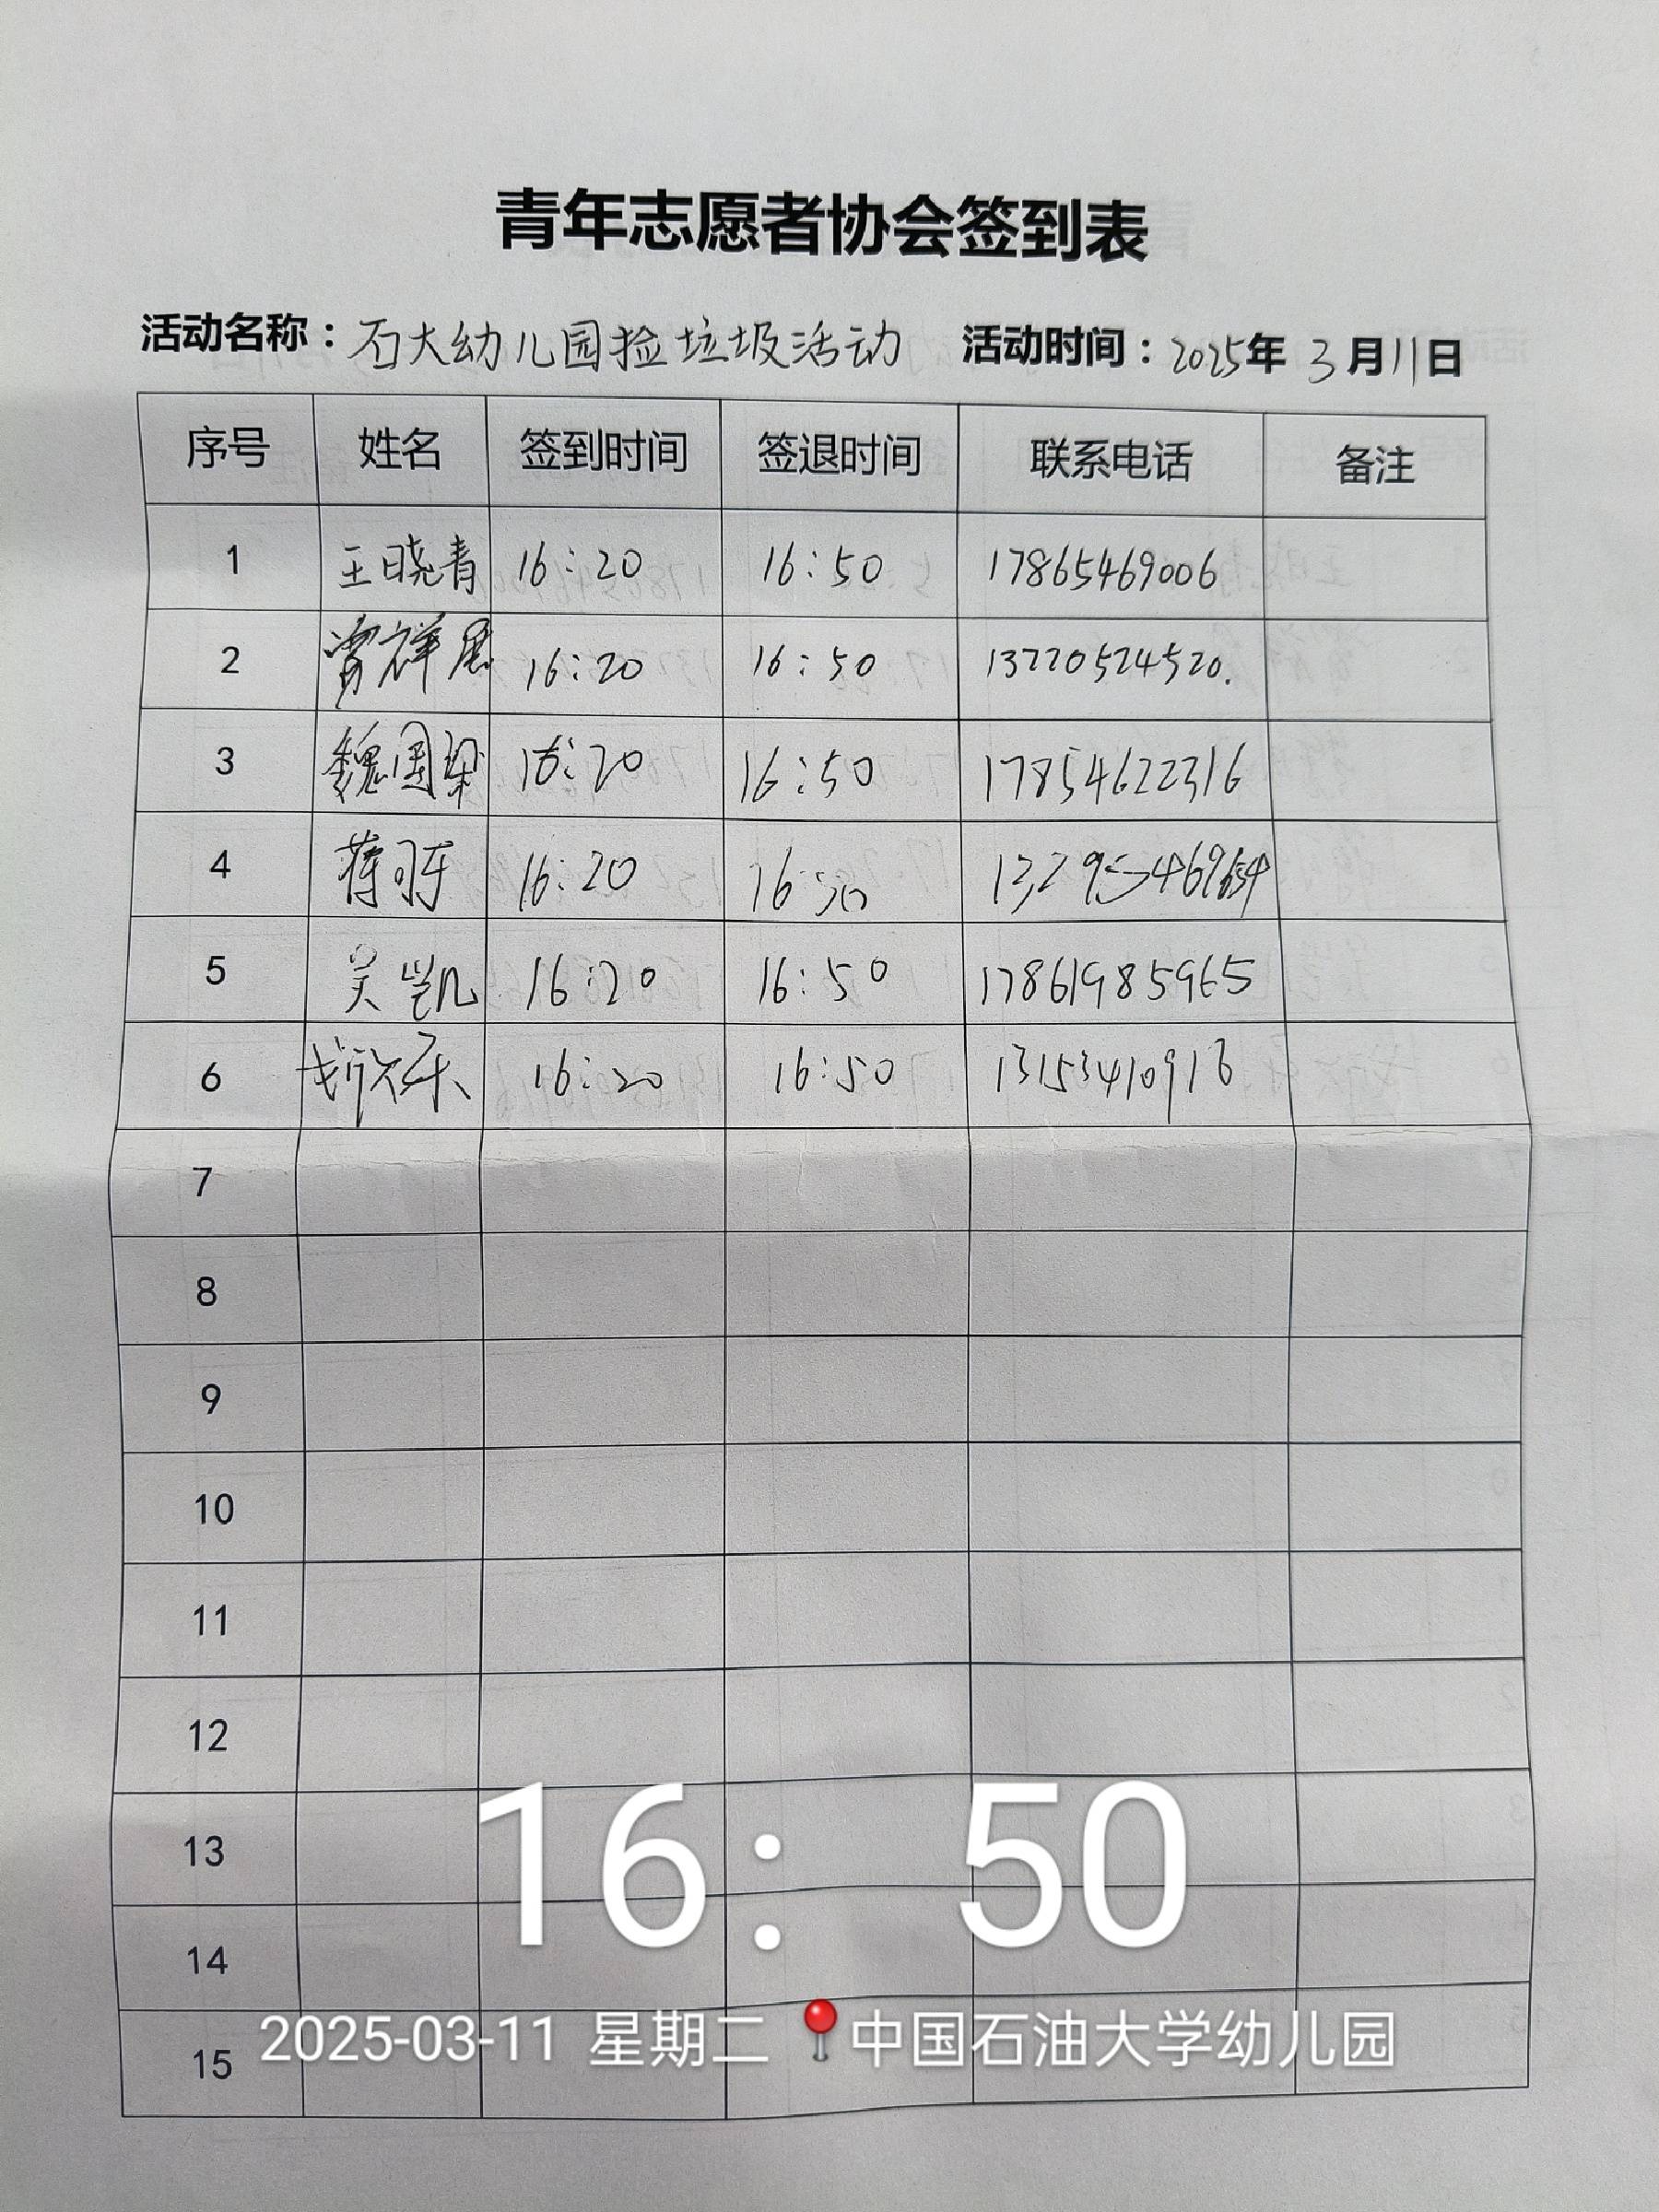 青年志愿者协会签到表
活动名称：石大幼儿园捡垃圾活动 活动时间：2025年3月11日
序号 姓名 签到时间 签退时间 联系电话 备注
1 王晓青 16:20 16:50 17865469006
2 16:20 16:50 13220524520.
3 魏国梁 16:20 16:50 17854622316
4 16:20 16:50
5 吴凯 16:20 16:50 17861985965
6 16:20 16:50
7
8
9
10
11
12
13
14
15
16：50
2025-03-11 星期二 📍中国石油大学幼儿园